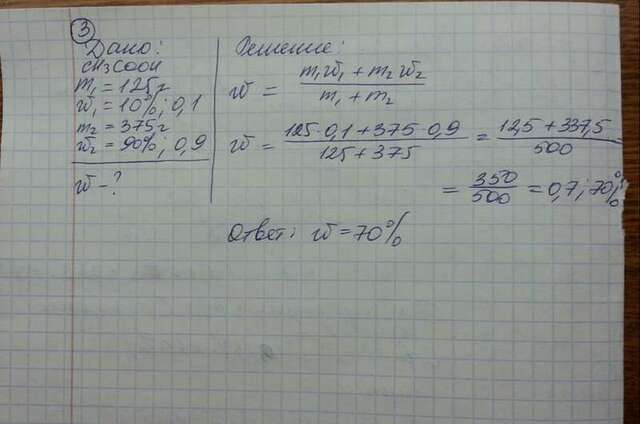 ③
Дано:
CH3COOH
m₁ = 125г
w₁ = 10%; 0,1
m₂ = 375г
w₂ = 90%; 0,9
w - ?
Решение:
w = (m₁w₁ + m₂w₂) / (m₁ + m₂)
w = (125·0,1 + 375·0,9) / (125 + 375) = (12,5 + 337,5) / 500 =
= 350 / 500 = 0,7; 70%
Ответ: w = 70%